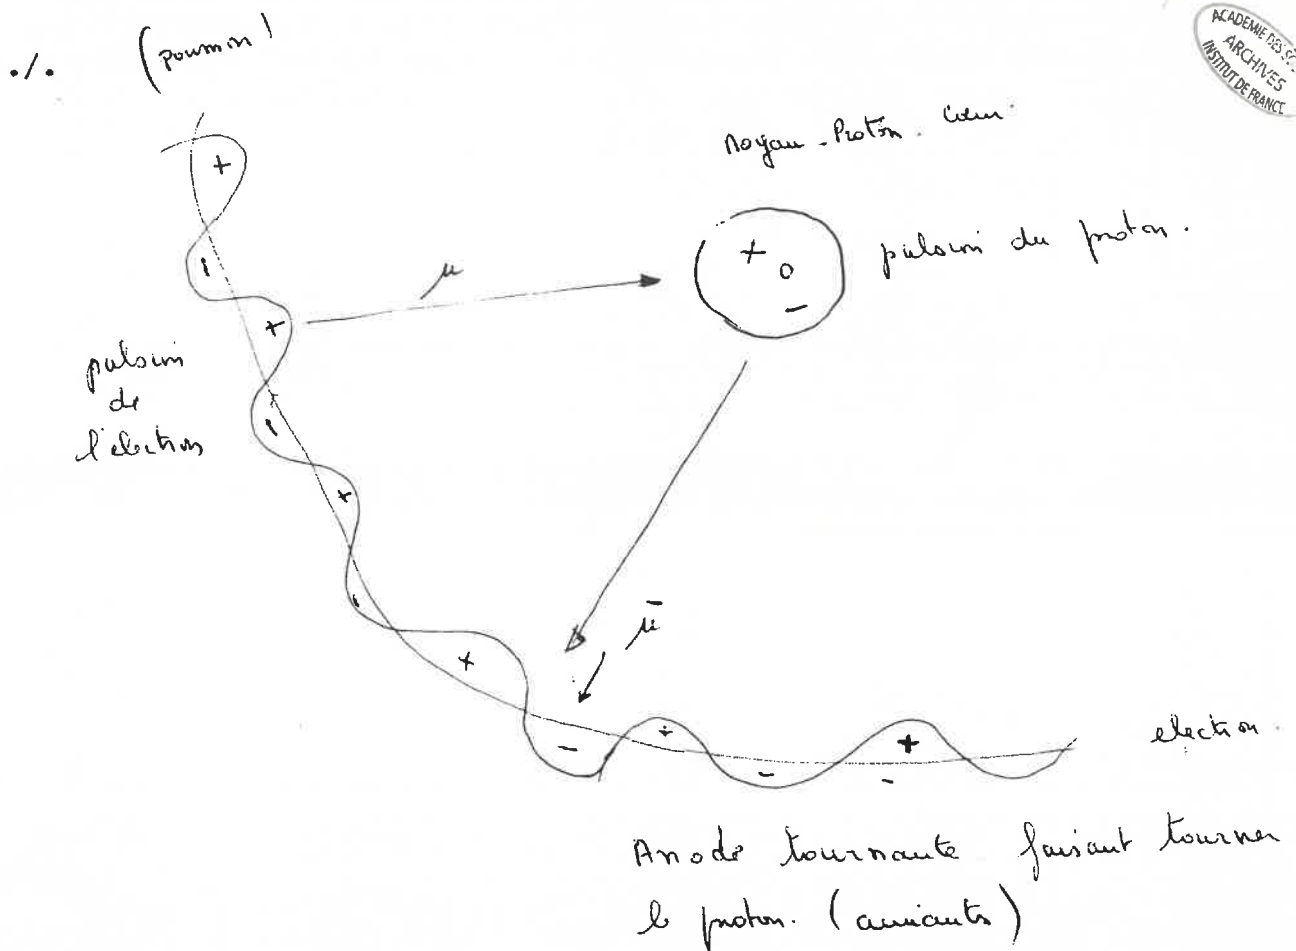 ./.
(poumon)
ACADEMIE DES
ARCHIVES
INSTITUT DE FRANCE
noyau - Proton. coeur.
+
+ o -
pulsion du proton.
-
μ
+
pulsion
de
l'électron
-
+
-
μ̄
+
-
+
-
+
-
electron.
Anode tournante faisant tourner
le proton.